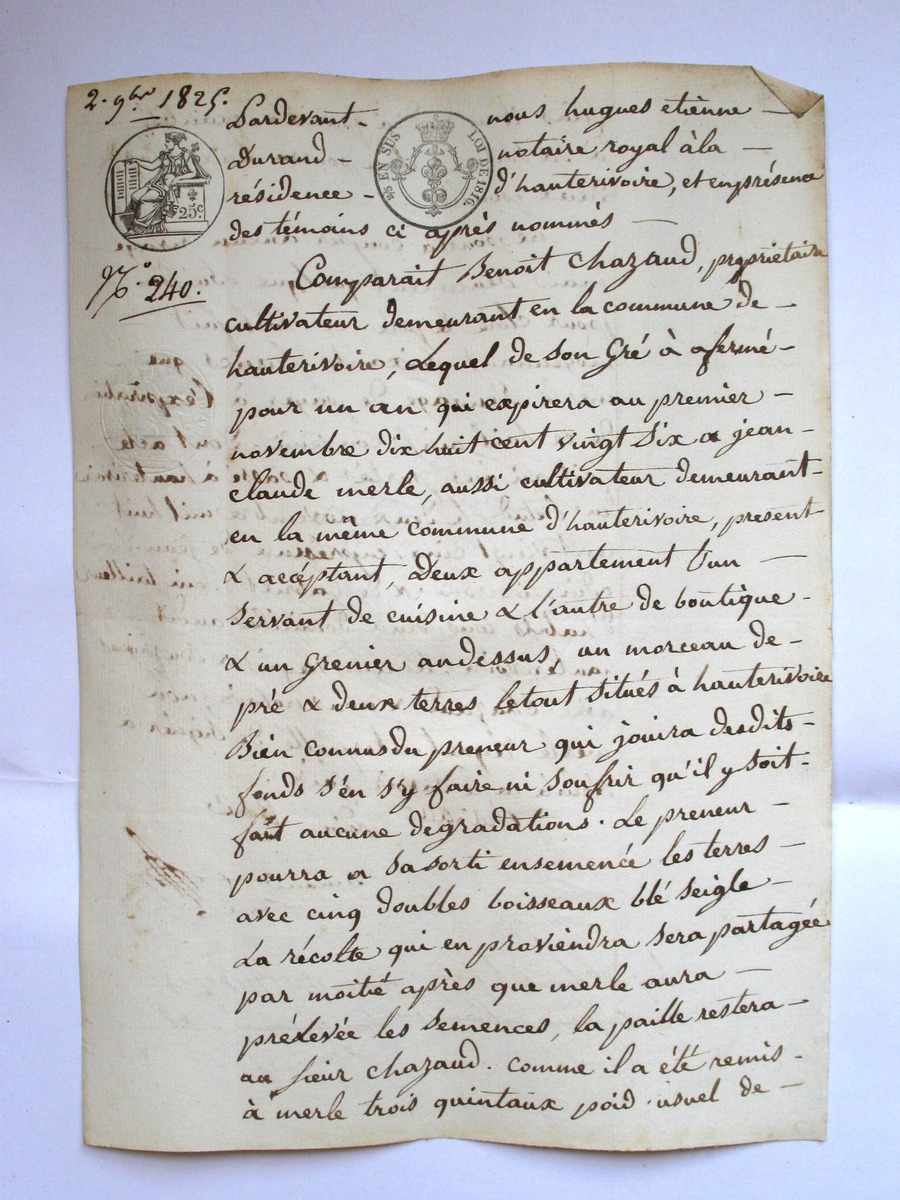 2. 9bre 1825.
Pardevant nous hugues etiènne
Durand notaire royal à la
résidence d'hauterivoire, et en présence
des témoins ci après nommés
25 EN SUS LOI DE 1816.
25c
No. 240.
Comparait Benoit Chazaud, propriétaire
cultivateur demeurant en la commune de
hauterivoire, Lequel de son Gré à afermé
pour un an qui expirera au premier
novembre dix huit cent vingt Six a jean
claude merle, aussi cultivateur demeurant
en la même commune d'hauterivoire, présent
& acéptant, Deux appartement l'un
Servant de cuisine & l'autre de boutique
& un Grenier audessus, un morceau de
pré & deux terres, letout Situés à hauterivoire
Bien connus du preneur qui jouira desdits
fonds s'en s'y faire ni soufrir qu'il y soit
fait aucune dégradations. Le preneur
pourra a sa sorti ensemencé les terres
avec cinq doubles boisseaux blé Seigle
La récolte qui en proviéndra Sera partagée
par moitié après que merle aura
prélevée les semences, la paille restera
au sieur Chazaud. Comme il a été remis
à merle trois quintaux poid usuel de